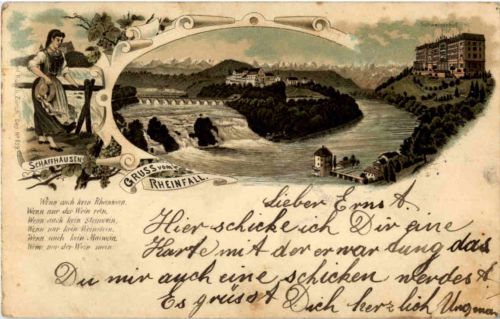 SCHAFFHAUSEN
GRUSS VOM
RHEINFALL.
Wenn auch kein Rheinwein,
Wenn nur der Wein rein,
Wenn auch kein Steinwein,
Wenn nur kein Weinstein,
Wenn auch kein Mainwein,
Wenn nur der Wein mein.
Lieber Ernst A.
Hier schicke ich Dir eine
Karte mit der erwartung das
Du mir auch eine schicken werdest
Es grüsst Dich herzlich